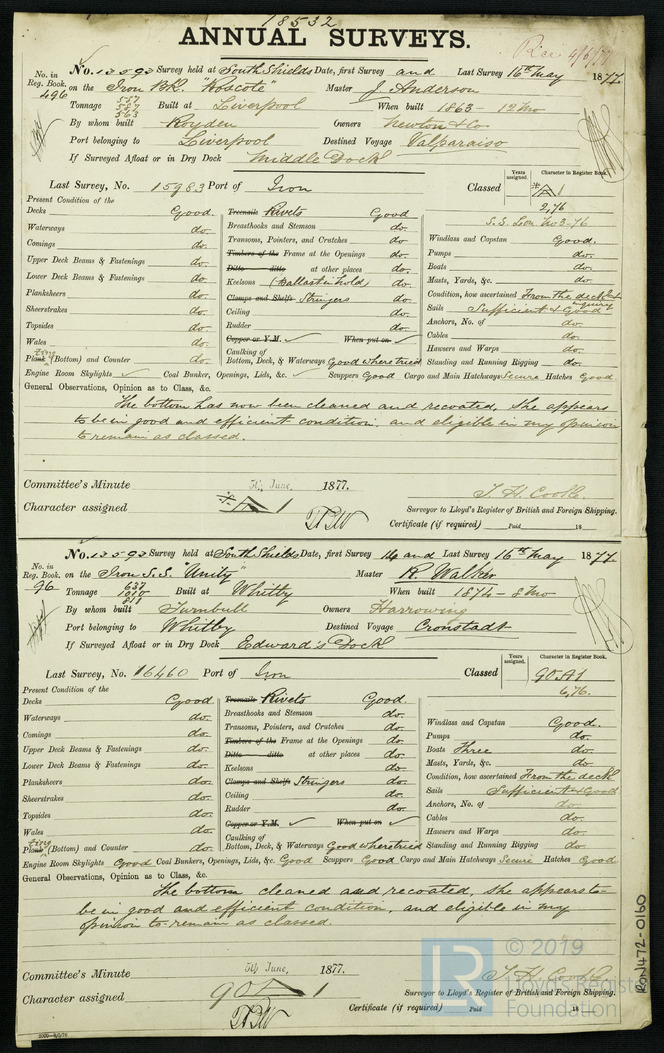 18532
ANNUAL SURVEYS.
Rice 4/6/77
No. in Reg. Book. 496
No. 13593 Survey held at South Shields Date, first Survey and Last Survey 16th May 1877
on the Iron BK. "Roscote" Master J. Anderson
Tonnage 557 587 563 Built at Liverpool When built 1863 - 12 mo
By whom built Royden Owners Newton & Co.
Port belonging to Liverpool Destined Voyage Valparaiso
If Surveyed Afloat or in Dry Dock Middle Dock
Last Survey, No. 15983 Port of Iron Classed Years assigned. Character in Register Book. A1
2,76
S.S. Lon No 3-76
Present Condition of the
Decks Good
Waterways do.
Comings do.
Upper Deck Beams & Fastenings do.
Lower Deck Beams & Fastenings do.
Planksheers do.
Sheerstrakes do.
Topsides do.
Wales do.
Plank (Bottom) and Counter do.
Treenails Rivets Good
Breasthooks and Stemson do.
Transoms, Pointers, and Crutches do.
Timbers of the Frame at the Openings do.
Ditto ditto at other places do.
Keelsons (Ballast in hold) do.
Clamps and Shelfs Stringers do.
Ceiling do.
Rudder do.
Copper or Y.M. When put on
Caulking of
Bottom, Deck, & Waterways Good where tried
Windlass and Capstan Good.
Pumps do.
Boats do.
Masts, Yards, &c. do.
Condition, how ascertained From the deck & inquiry
Sails Sufficient & Good
Anchors, No. of do.
Cables do.
Hawsers and Warps do.
Standing and Running Rigging do.
Engine Room Skylights Coal Bunker, Openings, Lids, &c. Scuppers Good Cargo and Main Hatchways Secure Hatches Good
General Observations, Opinion as to Class, &c.
The bottom has now been cleaned and recoated. She appears
to be in good and efficient condition, and eligible in my opinion
to remain as classed.
Committee's Minute 5th June, 1877.
Character assigned A 1
T. H. Cooke.
Surveyor to Lloyd's Register of British and Foreign Shipping.
Certificate (if required) Paid 18
No. in Reg. Book. 96
No. 13593 Survey held at South Shields Date, first Survey 14 and Last Survey 16th May 1877
on the Iron S.S. "Unity" Master R. Walker
Tonnage 637 1010 811 Built at Whitby When built 1874 - 8 mo
By whom built Turnbull Owners Harrowing
Port belonging to Whitby Destined Voyage Cronstadt
If Surveyed Afloat or in Dry Dock Edward's Dock
Last Survey, No. 16460 Port of Iron Classed Years assigned. Character in Register Book. 90.A1
6,76.
Present Condition of the
Decks Good
Waterways do.
Comings do.
Upper Deck Beams & Fastenings do.
Lower Deck Beams & Fastenings do.
Planksheers do.
Sheerstrakes do.
Topsides do.
Wales do.
Plank (Bottom) and Counter do.
Treenails Rivets Good.
Breasthooks and Stemson do.
Transoms, Pointers, and Crutches do.
Timbers of the Frame at the Openings do.
Ditto ditto at other places do.
Keelsons do.
Clamps and Shelfs Stringers do.
Ceiling do.
Rudder do.
Copper or Y.M. When put on
Caulking of
Bottom, Deck, & Waterways Good where tried
Windlass and Capstan Good.
Pumps do.
Boats Three do.
Masts, Yards, &c. do.
Condition, how ascertained From the deck
Sails Sufficient & Good
Anchors, No. of do.
Cables do.
Hawsers and Warps do.
Standing and Running Rigging do.
Engine Room Skylights Good Coal Bunkers, Openings, Lids, &c. Good Scuppers Good Cargo and Main Hatchways Secure Hatches Good
General Observations, Opinion as to Class, &c.
The bottom cleaned and recoated, she appears to-
be in good and efficient condition, and eligible in my
opinion to remain as classed.
Committee's Minute 5th June, 1877.
Character assigned 90 A 1
T. H. Cooke.
Surveyor to Lloyd's Register of British and Foreign Shipping.
Certificate (if required) Paid 18
RON472-0160
LR © 2019
Lloyd's Register
Foundation